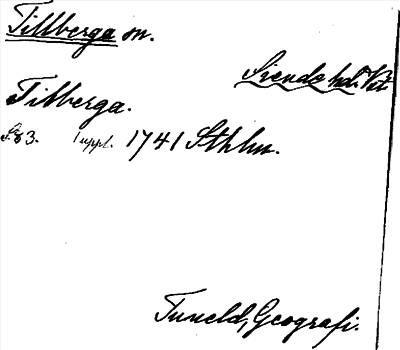 Tillberga sn.
Siende hd. Vst.
Tilberga.
S. 83. 1 uppl. 1741 Sthlm.
Tuneld, Geografi.